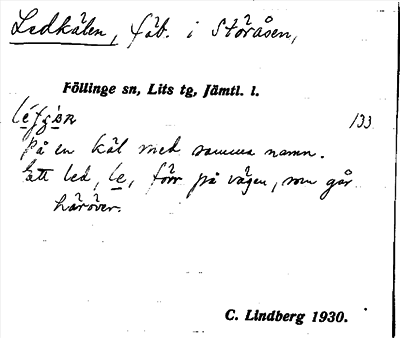 Ledkälen, fäb. i Storåsen,
Föllinge sn, Lits tg, Jämtl. l.
133
På en käl med samma namn.
Ett led, le, förr på vägen, som går
häröver.
C. Lindberg 1930.